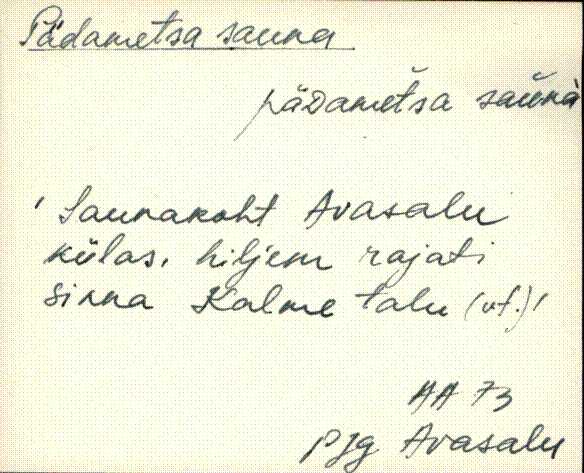 Pädametsa sauna
pädameťsa saũnà
' Saunakoht Avasalu
külas, hiljem rajati
sinna Kalme talu (vt.) '
AA 73
Pjg Avasalu